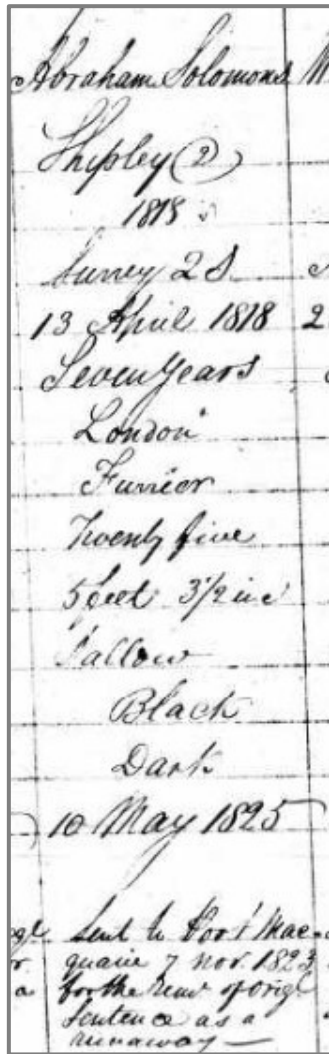 Abraham Solomons
Shipley (2)
1818
Surrey 2 S
13 April 1818
Seven Years
London
Furrier
Twenty five
5 feet 3 1/2 inc
Sallow
Black
Dark
10 May 1825
sent to Port Mac-
quarie 7 Nov. 1823
for the rem.r of origl
sentence as a
runaway —